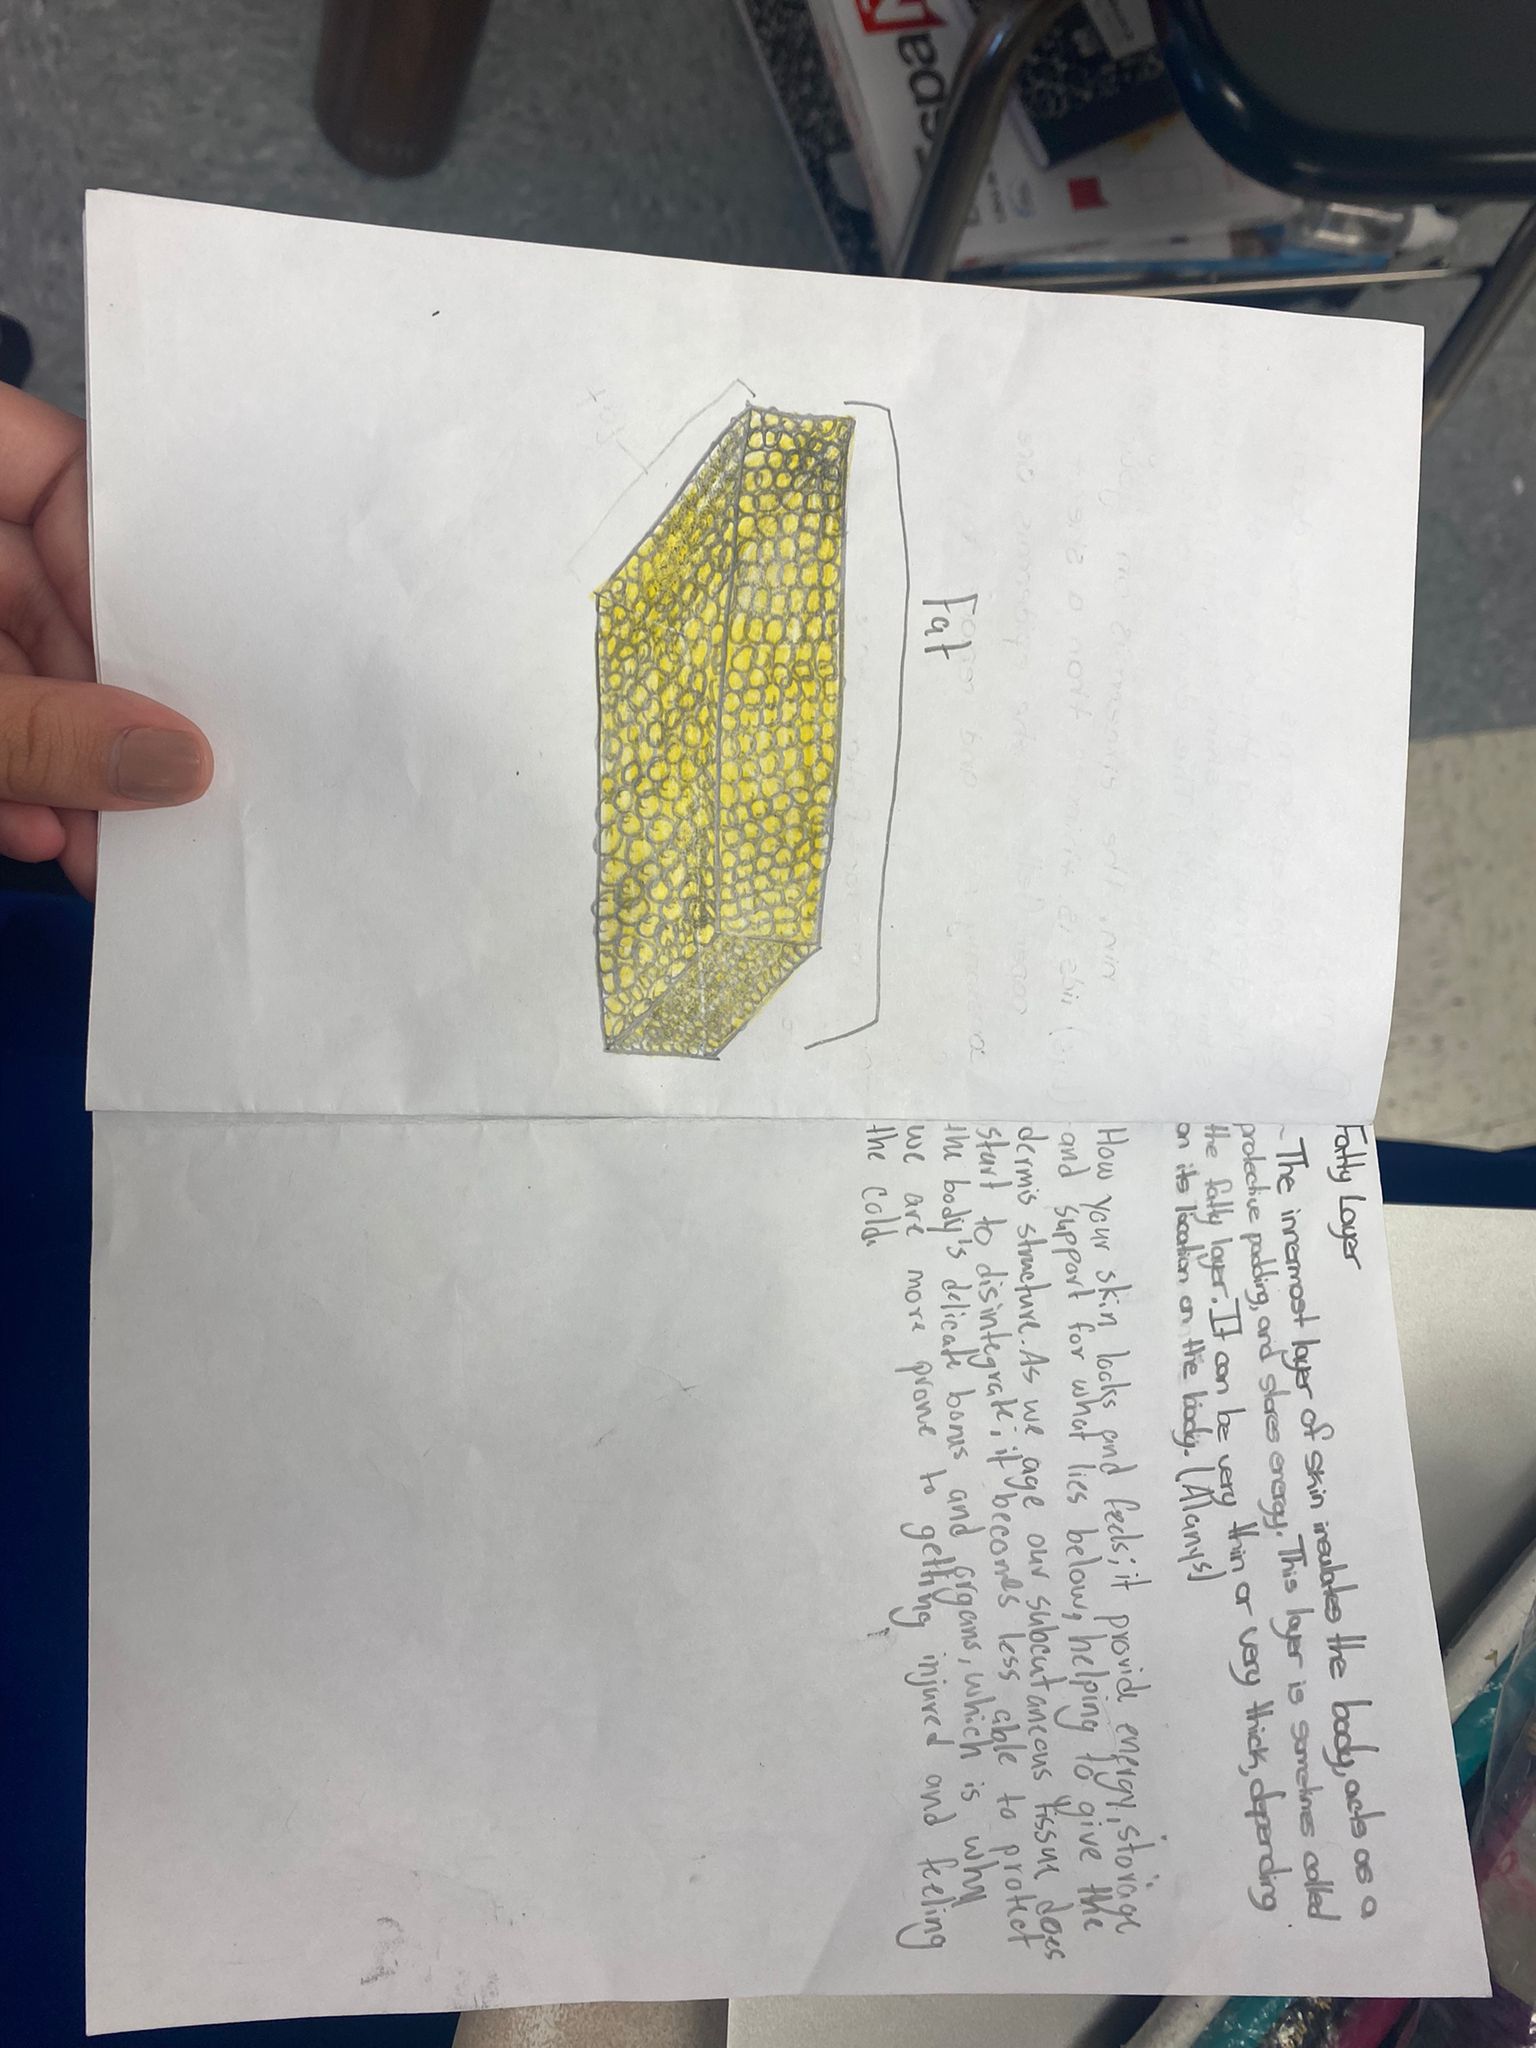 Fat
Fatty Layer
- The innermost layer of skin insulates the body, acts as a
protective padding, and stores energy. This layer is sometimes called
the fatty layer. It can be very thin or very thick, depending
on its location on the body. (Alanys)
How your skin looks and feels; it provide energy, storage
and support for what lies below, helping to give the
dermis structure. As we age our subcutaneous tissue does
start to disintegrate; it becomes less able to protect
the body's delicate bones and organs, which is why
we are more prone to getting injured and feeling
the cold.